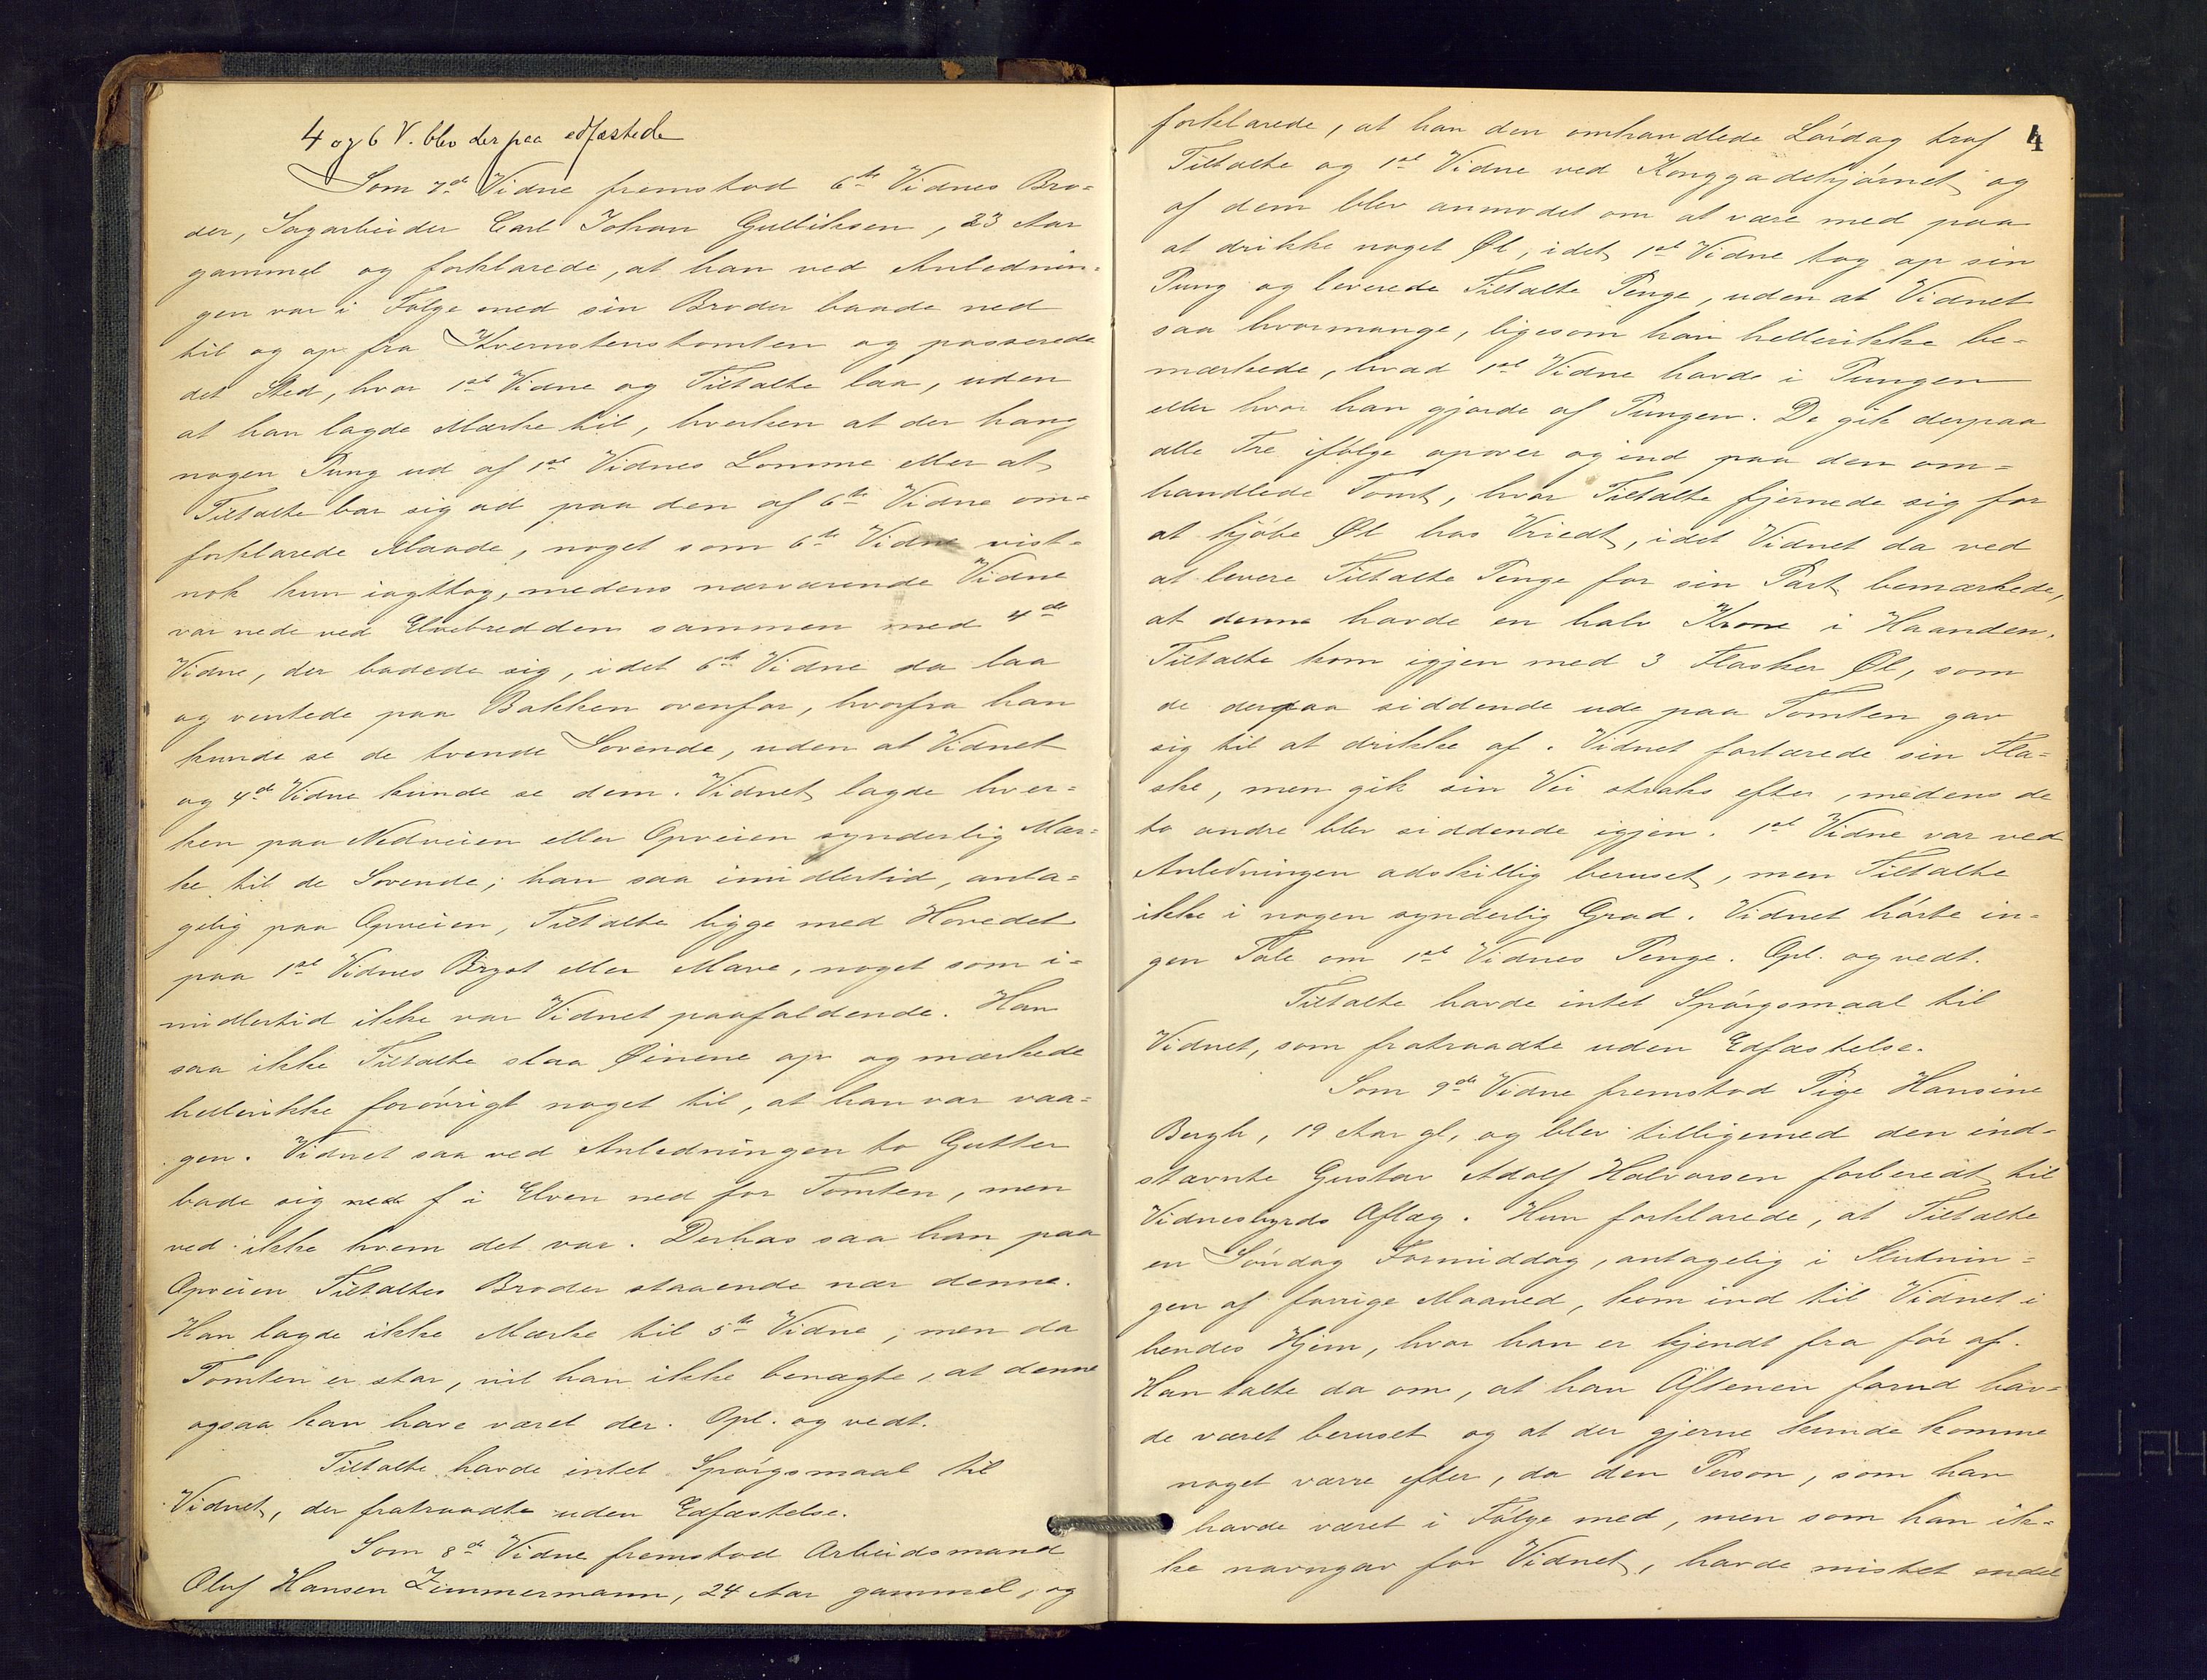 4 og 6 V. blev derpaa edfæstede
Som 7de Vidne fremstod 6te Vidnes Bro-
der, Sagarbeider Carl Johan Gulliksen, 23 Aar
gammel og forklarede, at han ved Anlednin-
gen var i Følge med sin Broder baade ned
til og op fra Kvernstenstomten og passerede
det Sted, hvor 1ste Vidne og Tiltalte laa, uden
at han lagde Mærke til, hverken at der hang
nogen Pung ud af 1ste Vidnes Lomme eller at
Tiltalte bar sig ad paa den af 6te Vidne om-
forklarede Maade, noget som 6te Vidne vist-
nok kun iagttog, medens nærværende Vidne
var nede ved Elvebredden sammen med 4de
Vidne, der badede sig, idet 6te Vidne da laa
og ventede paa Bakken ovenfor, hvorfra han
kunde se de tvende Sovende, uden at Vidnet
og 4de Vidne kunde se dem. Vidnet lagde hver-
ken paa Nedveien eller Opveien synderlig Mær-
ke til de Sovende; han saa imidlertid, anta-
gelig paa Opveien, Tiltalte ligge med Hovedet
paa 1ste Vidnes Bryst eller Mave, noget som i-
midlertid ikke var Vidnet paafaldende. Han
saa ikke Tiltalte slaa Øinene op og mærkede
hellerikke forøvrigt noget til, at han var vaa-
gen. Vidnet saa ved Anledningen to Gutter
bade sig ned f i Elven ned for Tomten, men
ved ikke hvem det var. Derhos saa han paa
Opveien Tiltaltes Broder staaende nær denne.
Han lagde ikke Mærke til 5te Vidne; men da
Tomten er stor, vil han ikke benægte, at denne
ogsaa kan have været der. Opl. og vedt.
Tiltalte havde intet Spørgsmaal til
Vidnet, der fratraadte uden Edfæstelse.
Som 8de Vidne fremstod Arbeidsmand
Oluf Hansen Zimmermann, 24 Aar gammel, og
4
forklarede, at han den omhandlede Lørdag traf
Tiltalte og 1ste Vidne ved Konggadehjørnet og
af dem blev anmodet om at være med paa
at drikke noget Øl, idet 1ste Vidne tog op sin
Pung og leverede Tiltalte Penge, uden at Vidnet
saa hvormange, ligesom han hellerikke be-
mærkede, hvad 1ste Vidne havde i Pungen
eller hvor han gjorde af Pungen. De gik derpaa
alle Tre ifølge opover og ind paa den om-
handlede Tomt, hvor Tiltalte fjernede sig for
at kjøbe Øl hos Vriedt, idet Vidnet da ved
at levere Tiltalte Penge for sin Part bemærkede,
at denne havde en halv Krone i Haanden.
Tiltalte kom igjen med 3 Flasker Øl, som
de derpaa siddende ude paa Tomten gav
sig til at drikke af. Vidnet fortærede sin Fla-
ske, men gik sin Vei straks efter, medens de
to andre blev siddende igjen. 1ste Vidne var ved
Anledningen adskillig beruset, men Tiltalte
ikke i nogen synderlig Grad. Vidnet hørte in-
gen Tale om 1ste Vidnes Penge. Opl. og vedt.
Tiltalte havde intet Spørgsmaal til
Vidnet, som fratraadte uden Edfæstelse.
Som 9de Vidne fremstod Pige Hansine
Bergh, 19 Aar gl, og blev tilligemed den ind-
stævnte Gustav Adolf Halvorsen forberedt til
Vidnesbyrds Aflæg. Hun forklarede, at Tiltalte
en Søndag Formiddag, antagelig i Slutnin-
gen af forrige Maaned, kom ind til Vidnet i
hendes Hjem, hvor han er kjendt fra før af.
Han talte da om, at han Aftenen forud hav-
de været beruset og at der gjerne kunde komme
noget værre efter, da den Person, som han
havde været i Følge med, men som han ik-
ke navngav for Vidnet, havde mistet endel